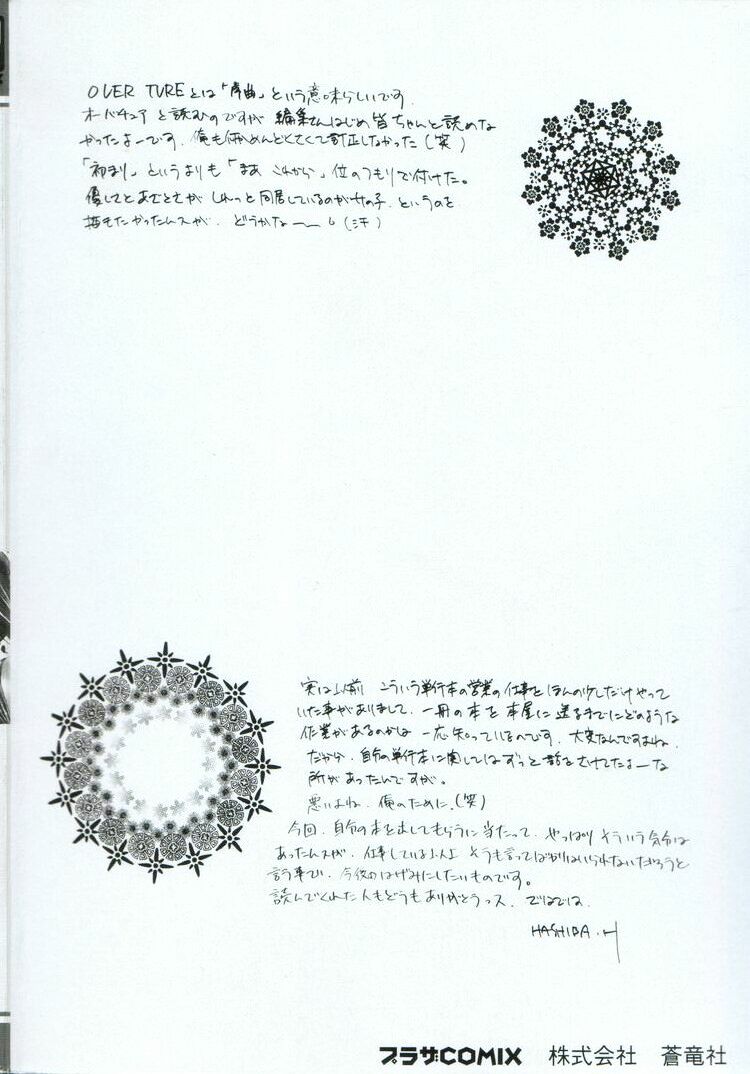 OVER TUREとは「序曲」という意味らしいです.
オーバチュアと読むのですが 編集さんはじめ皆ちゃんと読めな
かったよーです. 俺も何かめんどくさくて訂正しなかった(笑)
「初まり」というよりも「まあ これから」位のつもりで付けた。
優しさと が しれっと同居しているのが女の子. というのを
描きたかったんスが. どうかな〜〜 (汗)
実は以前 こういう単行本の営業の仕事をほんの少しだけやって
いた事がありまして. 一冊の本を本屋に送るまでにどのような
作業があるのかは 一応知っているのです. 大変なんですよね.
だから. 自分の単行本に関してはずっと話をさけてたよーな
所があったんですが。
悪いよね. 俺のために.(笑)
今回. 自分の本を出してもらうに当たって. やっぱり そういう気分は
あったんスが. 仕事している以上 そうも言ってばかりはいられないだろうと
言う事で. 今後のはげみにしたいものです。
読んでくれた人もどうもありがとうっス. ではでは.
HASHIBA.H
プラザCOMIX 株式会社 蒼竜社